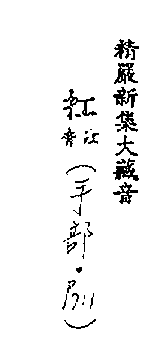 精嚴新集大藏音
音江
(手部·